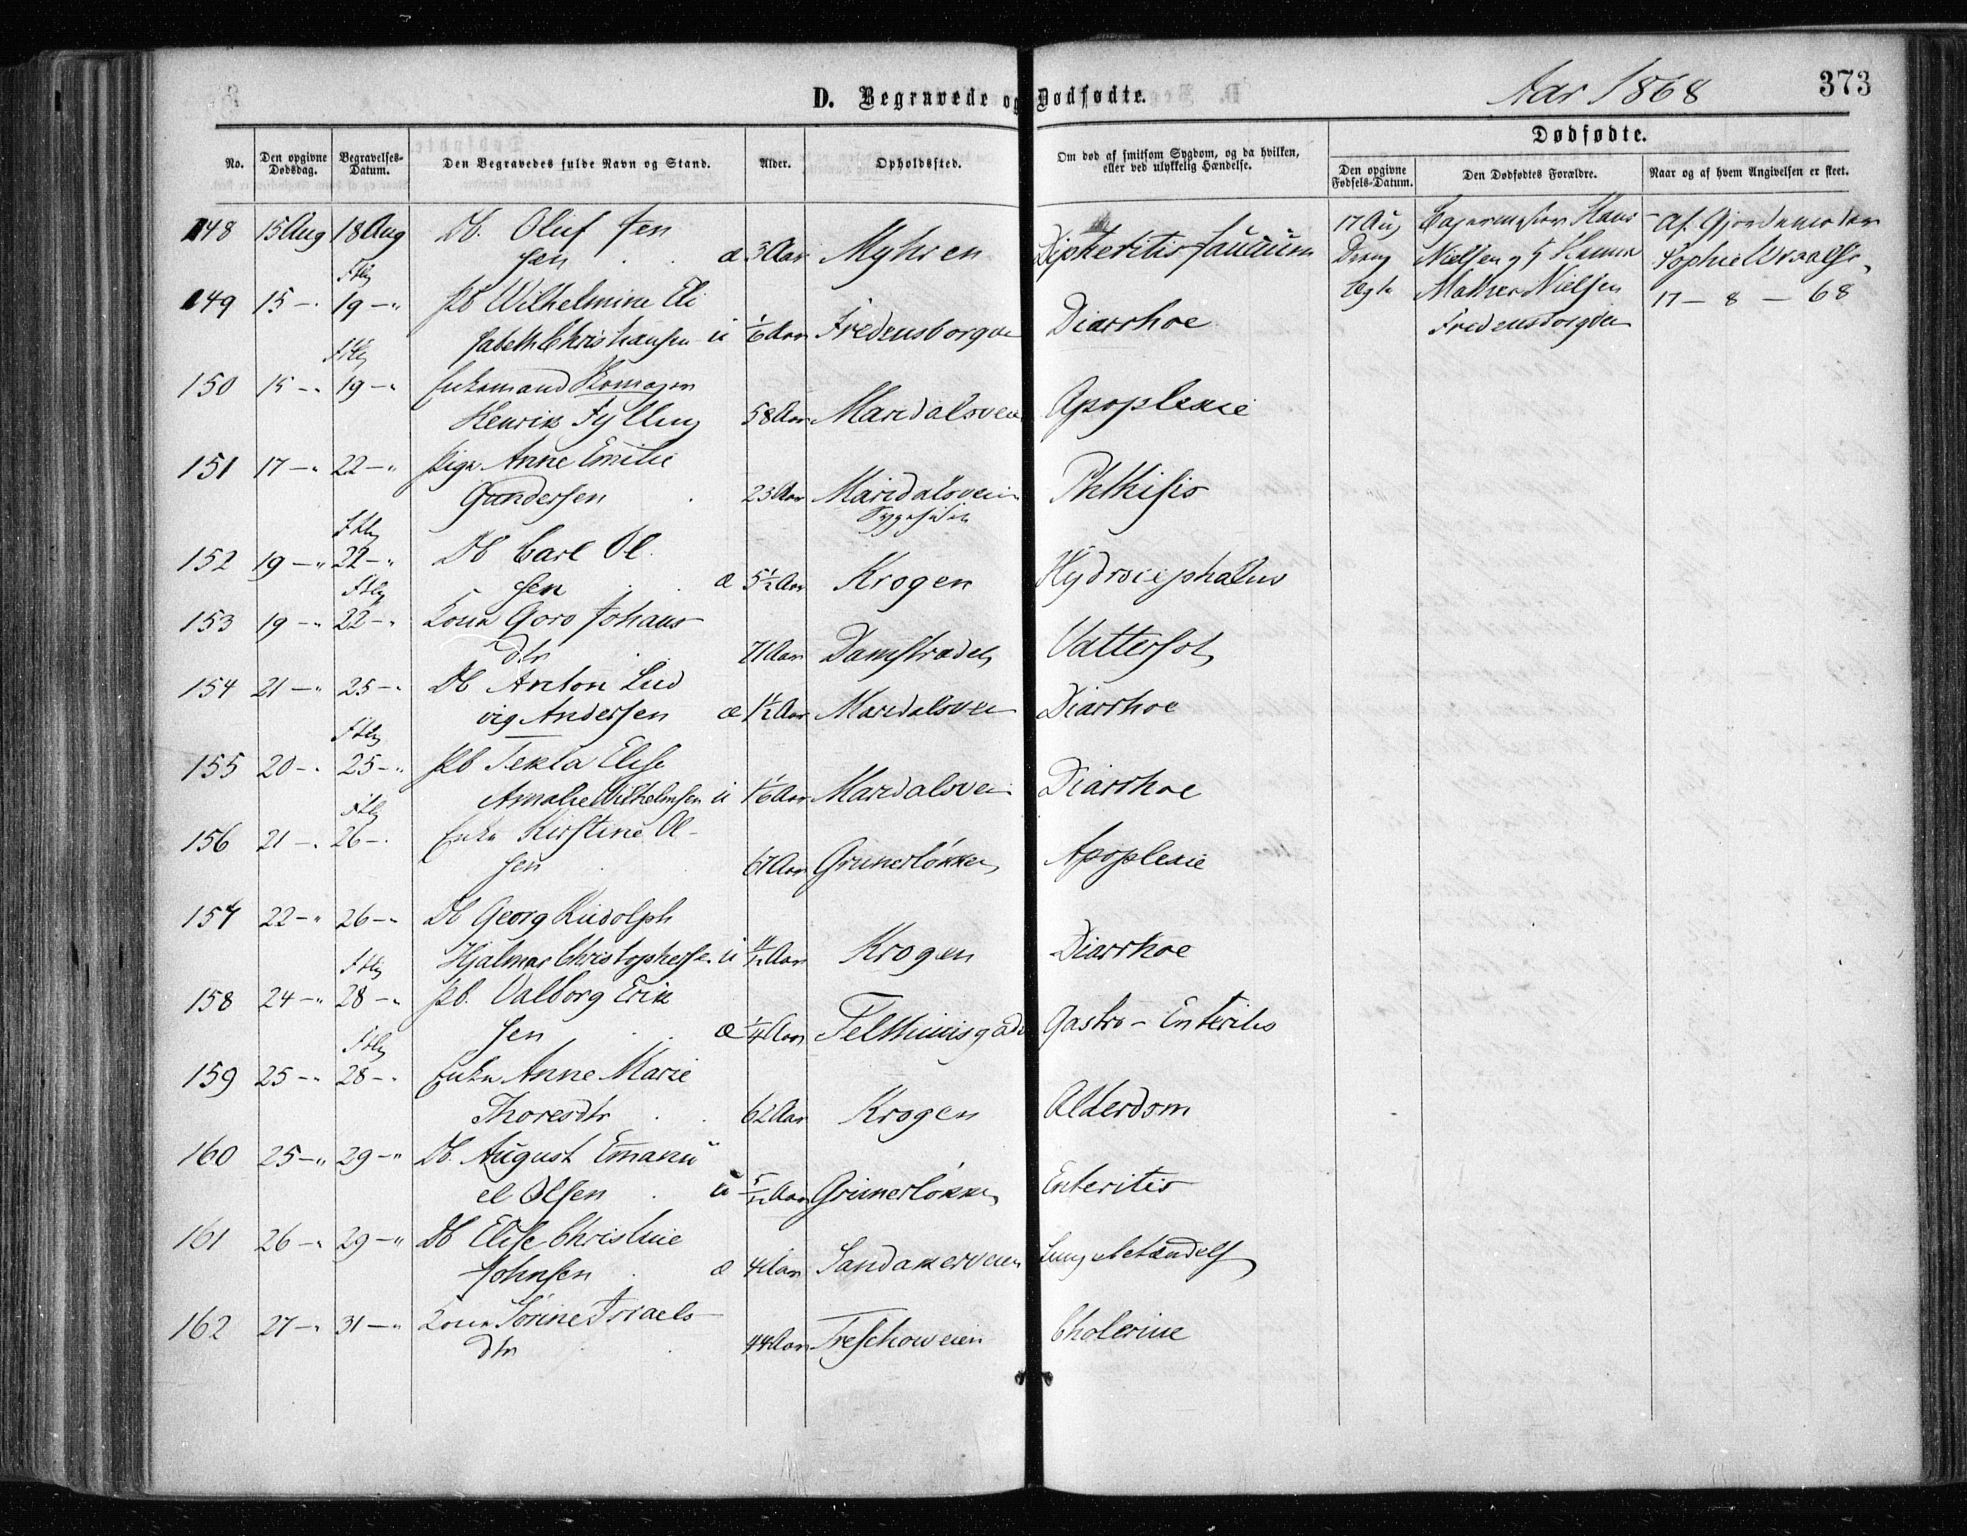 D. Begravede og Dødfødte.
Aar 1868
373
No.
Den opgivne Dødsdag.
Begravelses-Datum.
Den Begravedes fulde Navn og Stand.
Alder.
Opholdssted.
Om død af smitsom Sygdom, og da hvilken, eller ved ulykkelig Hændelse.
Dødfødte.
Den opgivne Fødsels-Datum.
Den Dødfødtes Forældre.
Naar og af hvem Angivelsen er skeet.
148 15 Aug 18 Aug Db. Oluf Jen
sen æ 3 Aar Myhren Dipheritis faucium
17 Aug
Dreng
Hans
Nielsen og H
Nielsen
Fredensborgvei
Af Gjordemoder
Sophie
17 - 8 - 68
149 15 -" 19 -" Pb Wilhelmine Eli
sabeth Christiansen u 1/6 Aar Fredensborgvei Diarrhoe
150 15 -" 19 -" Enkemand
Henrik Fylling 58 Aar Maridalsveien Apoplexie
151 17 -" 22 -" Pige Anne Emilie
Gundersen 23 Aar Maridalsveien Phthisis
152 19 -" 22 -" Db Carl Ol
sen æ 5 1/2 Aar Krogen Hydrocephalus
153 19 -" 22 -" Kone Goro Johans
dtr 71 Aar Damstrædet Vattersot
154 21 -" 25 -" Db Anton Lud
vig Andersen æ 1 1/2 Aar Maridalsvei Diarrhoe
155 20 -" 25 -" Pb Tekla Elise
Amalie Wilhelmsen u 1 1/6 Aar Maridalsvei Diarrhoe
156 21 -" 26 -" Enke Kirstine Ol-
sen 67 Aar Grunerløkken Apoplexie
157 22 -" 26 -" Db Georg Rudolph
Hjalmar Christophersen u 11/12 Aar Krogen Diarrhoe
158 24 -" 28 -" Pb. Valborg Erik
sen æ 1/4 Aar Telthuusgade Gastro-Enteritis
159 25 -" 28 -" Enke Anne Marie
Thoresdtr 62 Aar Krogen Alderdom
160 25 -" 29 -" Db. August Emanu
el Olsen u 5/12 Aar Grunerløkken Enteritis
161 26 -" 29 -" Db Elise Christine
Johnsen æ 4 Aar Sandakerveien Lungebetændelse
162 27 -" 31 -" Kone Sørine Israels
dtr 44 Aar Treschowveien Cholerine